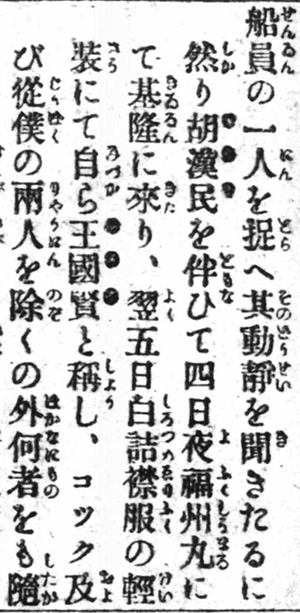 船員の一人を捉へ其動靜を聞きたるに
然り胡漢民を伴ひて四日夜福州丸に
て基隆に來り、翌五日白詰襟服の輕
裝にて自ら王國賢と稱し、コック及
び從僕の兩人を除くの外何者をも隨